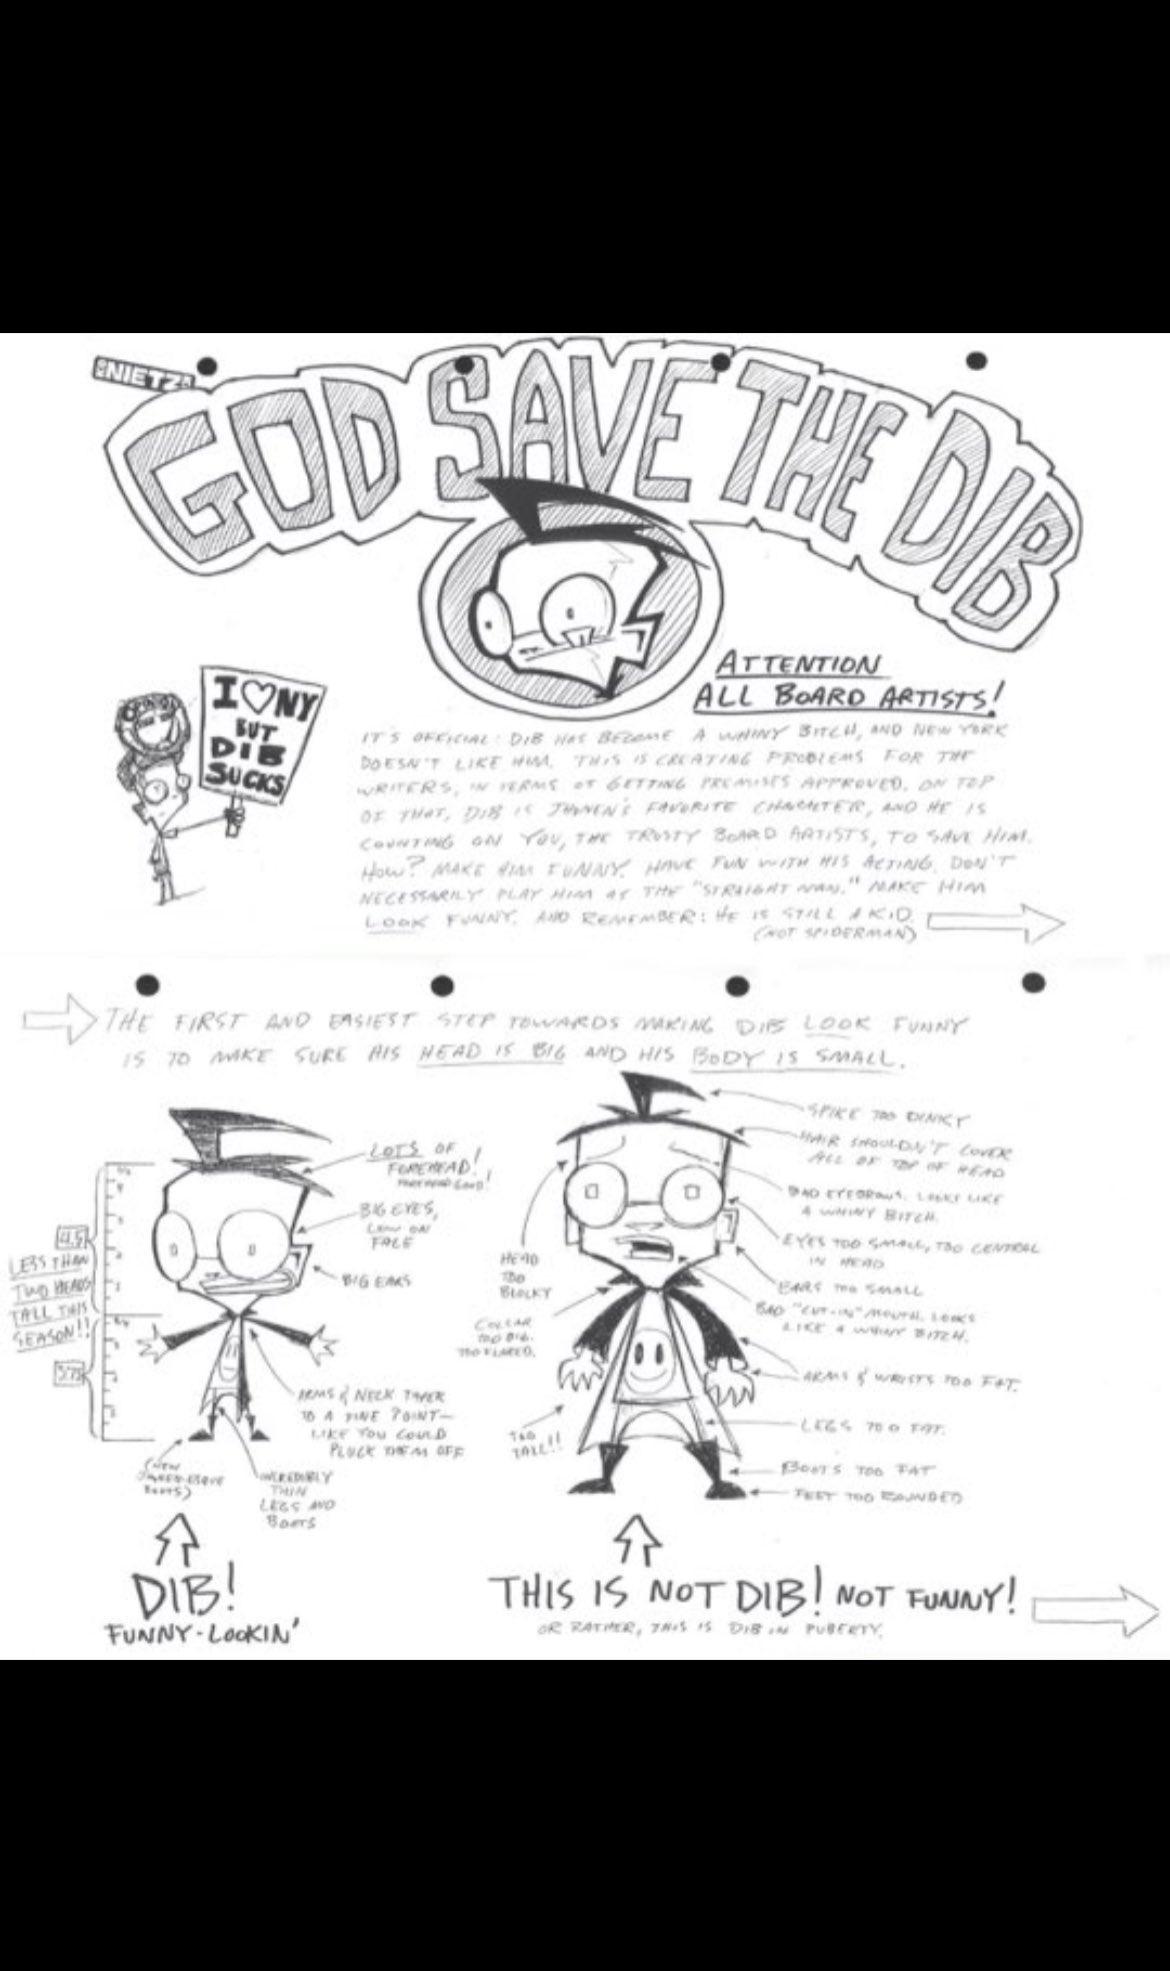 NIETZ
GOD SAVE THE DIB
I ♡ NY
BUT
DIB
SUCKS
ATTENTION
ALL BOARD ARTISTS!
IT'S OFFICIAL: DIB HAS BECOME A WHINY BITCH, AND NEW YORK
DOESN'T LIKE HIM. THIS IS CREATING PROBLEMS FOR THE
WRITERS, IN TERMS OF GETTING PREMISES APPROVED. ON TOP
OF THAT, DIB IS JHONEN'S FAVORITE CHARACTER, AND HE IS
COUNTING ON YOU, THE TRUSTY BOARD ARTISTS, TO SAVE HIM.
HOW? MAKE HIM FUNNY. HAVE FUN WITH HIS ACTING. DON'T
NECESSARILY PLAY HIM AS THE "STRAIGHT MAN." MAKE HIM
LOOK FUNNY. AND REMEMBER: HE IS STILL A KID.
(NOT SPIDERMAN)
THE FIRST AND EASIEST STEP TOWARDS MAKING DIB LOOK FUNNY
IS TO MAKE SURE HIS HEAD IS BIG AND HIS BODY IS SMALL.
4.5
LESS THAN
TWO HEADS
TALL THIS
SEASON!!
3.75
LOTS OF
FOREHEAD!
FOREHEAD GOOD!
BIG EYES,
LOW ON
FACE
BIG EARS
ARMS & NECK TAPER
TO A FINE POINT—
LIKE YOU COULD
PLUCK THEM OFF
(NEW
BOOTS)
INCREDIBLY
THIN
LEGS AND
BOOTS
DIB!
FUNNY-LOOKIN'
SPIKE TOO DINKY
HAIR SHOULDN'T COVER
ALL OF TOP OF HEAD
BAD EYEBROWS. LOOKS LIKE
A WHINY BITCH.
EYES TOO SMALL, TOO CENTRAL
IN HEAD
EARS TOO SMALL
BAD "CUT-IN" MOUTH. LOOKS
LIKE A WHINY BITCH.
ARMS & WRISTS TOO FAT.
LEGS TOO FAT.
BOOTS TOO FAT
FEET TOO ROUNDED
HEAD
TOO
BLOCKY
COLLAR
TOO BIG.
TOO FLARED.
TOO
TALL!!
THIS IS NOT DIB! NOT FUNNY!
OR RATHER, THIS IS DIB IN PUBERTY.